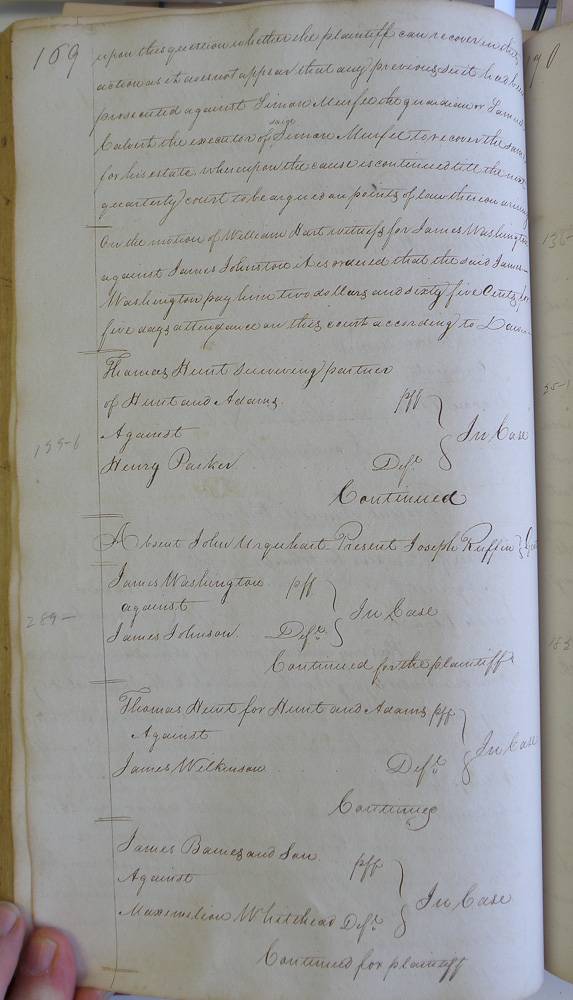 169
upon this question whether the plaintiff can recover in this
action as it does not appear that any previous suit has been
prosecuted against Simon Murfee the guardian or Samuel
Calvert the executor of said Simon Murfee to recover the same
for his estate whereupon the cause is continued till the next
quarterly court to be argued on points of law thereon arising
On the motion of William Hart witness for James Washington
against James Johnston it is ordered that the said James
Washington pay him two dollars and sixty five Cents for
five days attendance on this court according to Law
Thomas Hunt surviving partner
of Hunt and Adams plff
Against } In Case
Henry Parker Deft
Continued
199-6
Absent John Urquhart Present Joseph Ruffin }
James Washington plff
against } In Case
James Johnson Deft
289-
Continued for the plaintiff
Thomas Hunt for Hunt and Adams plff
Against } In Case
James Wilkinson Deft
Continued
James Barnes and Son plff
Against } In Case
Maximilion Whitehead Deft
Continued for plaintiff